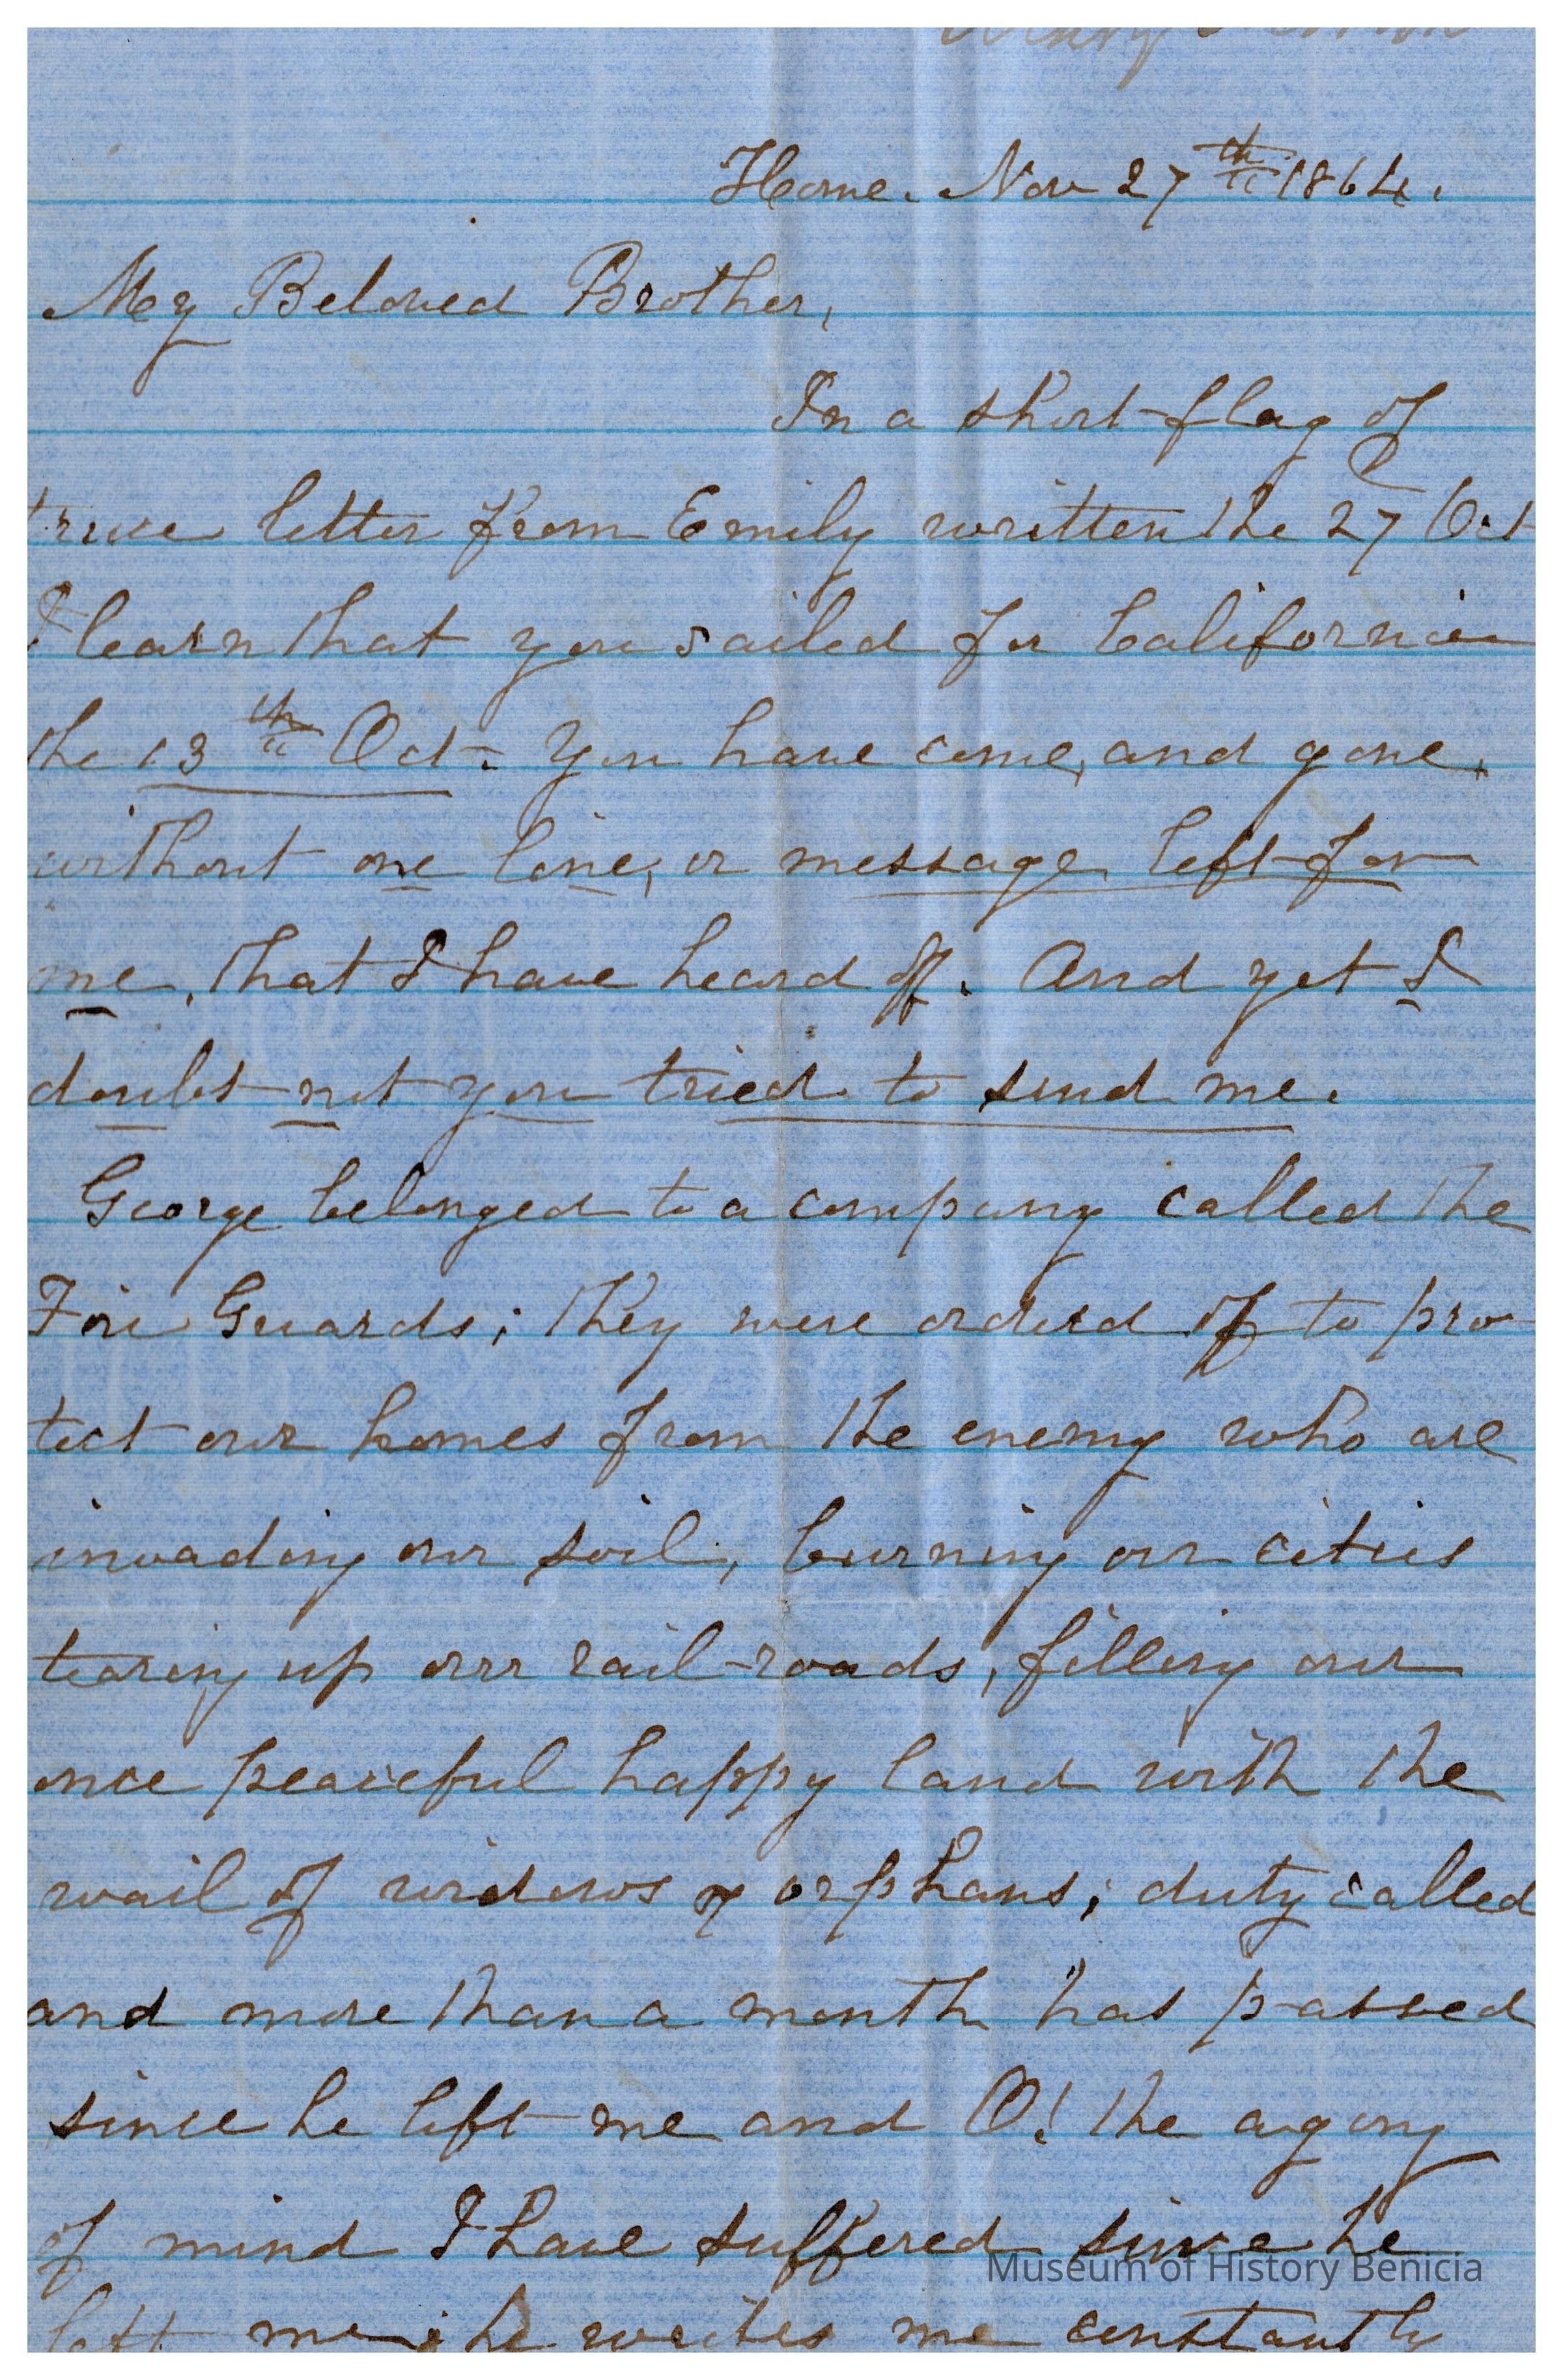 Home. Nov 27th 1864.
My Beloved Brother,
In a short flag of
truce letter from Emily written the 27 Oct
I learn that you sailed for California
the 13th Oct. You have come, and gone,
without one line, or message left for
me, that I have heard off. And yet I
doubt not you tried to send me.
George belonged to a company called the
Fire Guards; they were ordered off to pro
tect our homes from the enemy who are
invading our soil, burning our cities
tearing up our rail-roads, filling our
once peaceful happy land with the
wail of widows & orphans; duty called
and more than a month has passed
since he left me and O! the agony
of mind I have suffered since he
left me; he writes me constantly
Museum of History Benicia